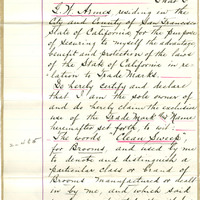 That I
G. W. Armes residing in the
City and County of San Francisco
State of California for the purpose
of securing to myself the advantage
benefit and protection of the law
of the State of California in re-
lation to Trade Marks.
Do hereby certify and declare
that I am the sole owner of
and do hereby claim the exclusive
use of the Trade Mark and Name
hereinafter set forth, to wit:
The words "Clean Sweep"
for Brooms, and used by me
to denote and distinguish a
particular class or brand of
Brooms manufactured or sold
by me, and which said